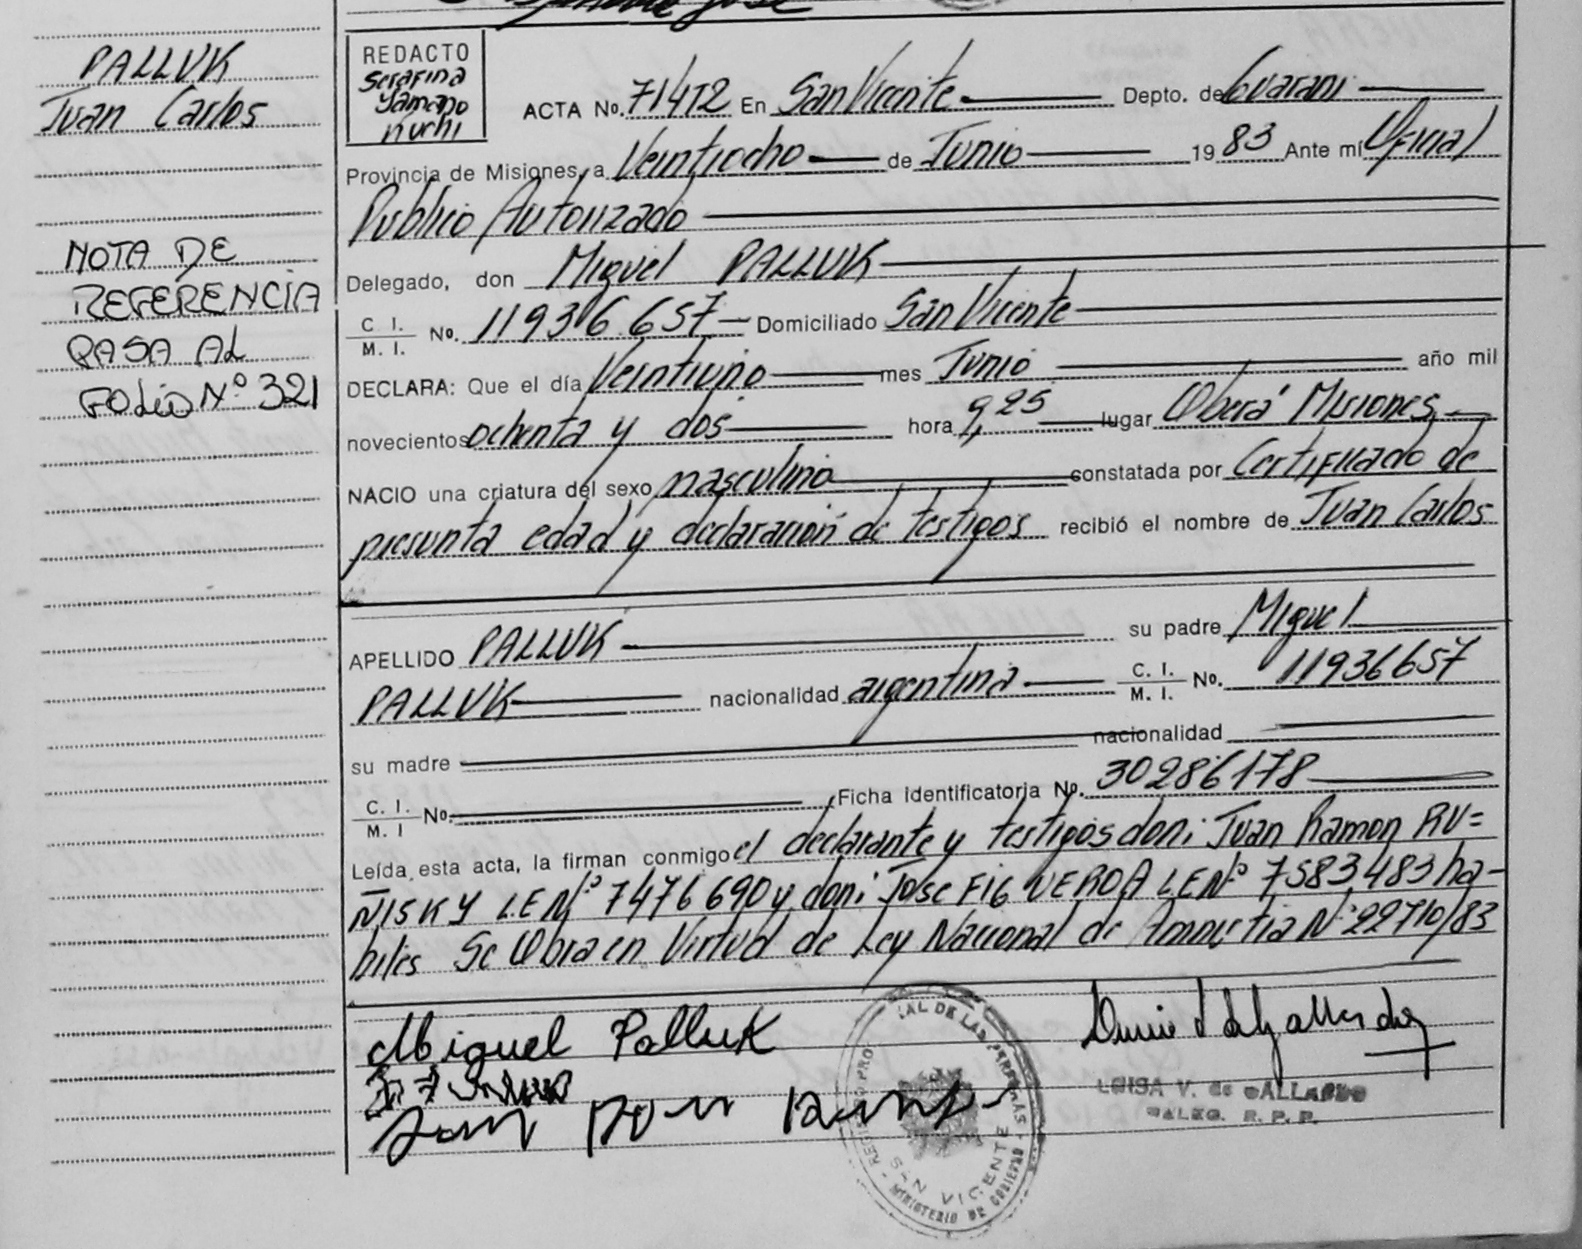 PALLUK
Juan Carlos
NOTA DE
REFERENCIA
PASA AL
FOLIO Nº 321
José
REDACTO
Serafina
Yamano
Kuchi
ACTA No. 714T2 En San Vicente Depto. de Guarani
Provincia de Misiones, a Veintiocho de Junio 1983 Ante mí Oficial
Publico Autorizado
Delegado, don Miguel PALLUK
C. I.
M. I. No. 11936.657 Domiciliado San Vicente
DECLARA: Que el día Veintiuno mes Junio año mil
novecientos ochenta y dos hora 9,25 lugar Oberá Misiones
NACIO una criatura del sexo masculino constatada por Certificado de
presunta edad y declaración de testigos recibió el nombre de Juan Carlos
APELLIDO PALLUK su padre Miguel
PALLUK nacionalidad argentina C. I.
M. I. No. 11936657
su madre nacionalidad
C. I.
M. I No. Ficha identificatoria No. 30286178
Leída esta acta, la firman conmigo el declarante y testigos don: Juan Ramon RU=
ÑISKY L.E Nº 7476690 y don: Jose FIGUEROA L.E Nº 7583483 ha-
biles Se Obra en Virtud de Ley Nacional de Amnistia Nº 22710/83
Miguel Palluk
LUISA V. de GALLARDO
DALEG. R. P. P.
REGISTRO PRO IAL DE LAS PERSONAS
SAN VICENTE
MINISTERIO DE GOBIERNO